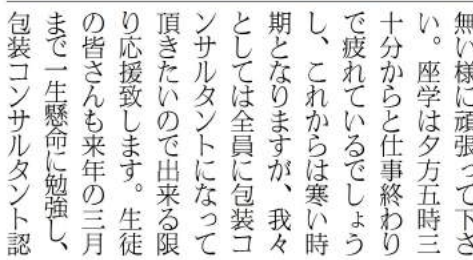 無い様に頑張って下さ
い。座学は夕方五時三
十分からと仕事終わり
で疲れているでしょう
し、これからは寒い時
期となりますが、我々
としては全員に包装コ
ンサルタントになって
頂きたいので出来る限
り応援致します。生徒
の皆さんも来年の三月
まで一生懸命に勉強し、
包装コンサルタント認